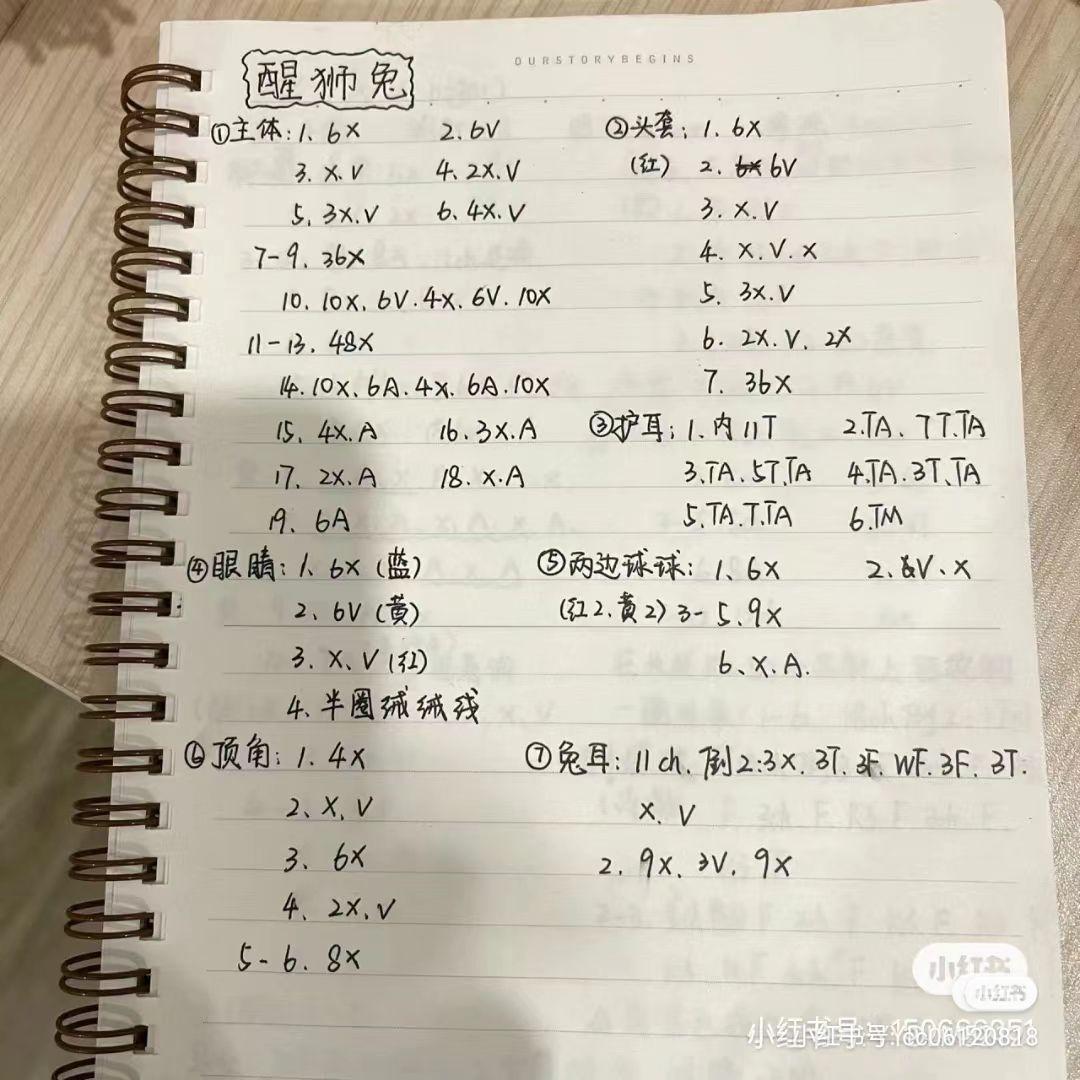 OURSTORYBEGINS
醒狮兔
①主体:1.6X 2.6V
3.X.V 4.2X.V
5.3X.V 6.4X.V
7-9.36X
10.10X.6V.4X.6V.10X
11-13.48X
14.10X.6A.4X.6A.10X
15.4X.A 16.3X.A
17.2X.A 18.X.A
19.6A
②头套:1.6X
(红) 2.6V
3.X.V
4.X.V.X
5.3X.V
6.2X.V.2X
7.36X
③护耳:1.内11T 2.TA.7T.TA
3.TA.5T.TA 4.TA.3T.TA
5.TA.T.TA 6.TM
④眼睛:1.6X(蓝)
2.6V(黄)
3.X.V(红)
4.半圈绒绒线
⑤两边球球:1.6X 2.V.X
(红2.黄2) 3-5.9X
6.X.A.
⑥顶角:1.4X
2.X.V
3.6X
4.2X.V
5-6.8X
⑦兔耳:11ch.倒2:3X.3T.3F.WF.3F.3T.
X.V
2.9X.3V.9X
小红书
小红书
小红书号: